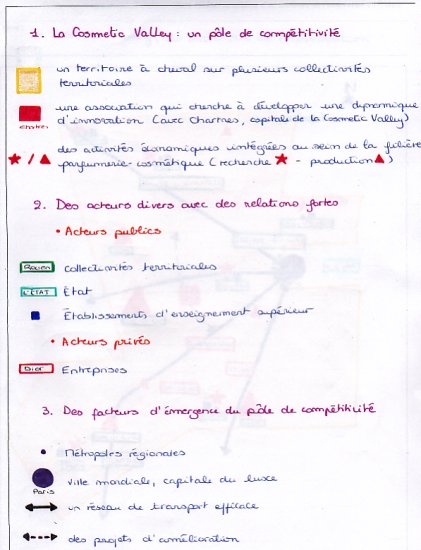 1. La Cosmetic Valley : un pôle de compétitivité
un territoire à cheval sur plusieurs collectivités
territoriales
une association qui cherche à développer une dynamique
d'innovation (avec Chartres, capitale de la Cosmetic Valley)
Chartres
des activités dynamiques intégrées au sein de la filière
parfumerie-cosmétique (recherche ★ - production ▲)
2. Des acteurs divers avec des relations fortes
• Acteurs publics
Rouen collectivités territoriales
L'ÉTAT État
Établissements d'enseignement supérieur
• Acteurs privés
Dior Entreprises
3. Des facteurs d'émergence du pôle de compétitivité
Métropoles régionales
ville mondiale, capitale du luxe
Paris
un réseau de transport efficace
des projets d'amélioration